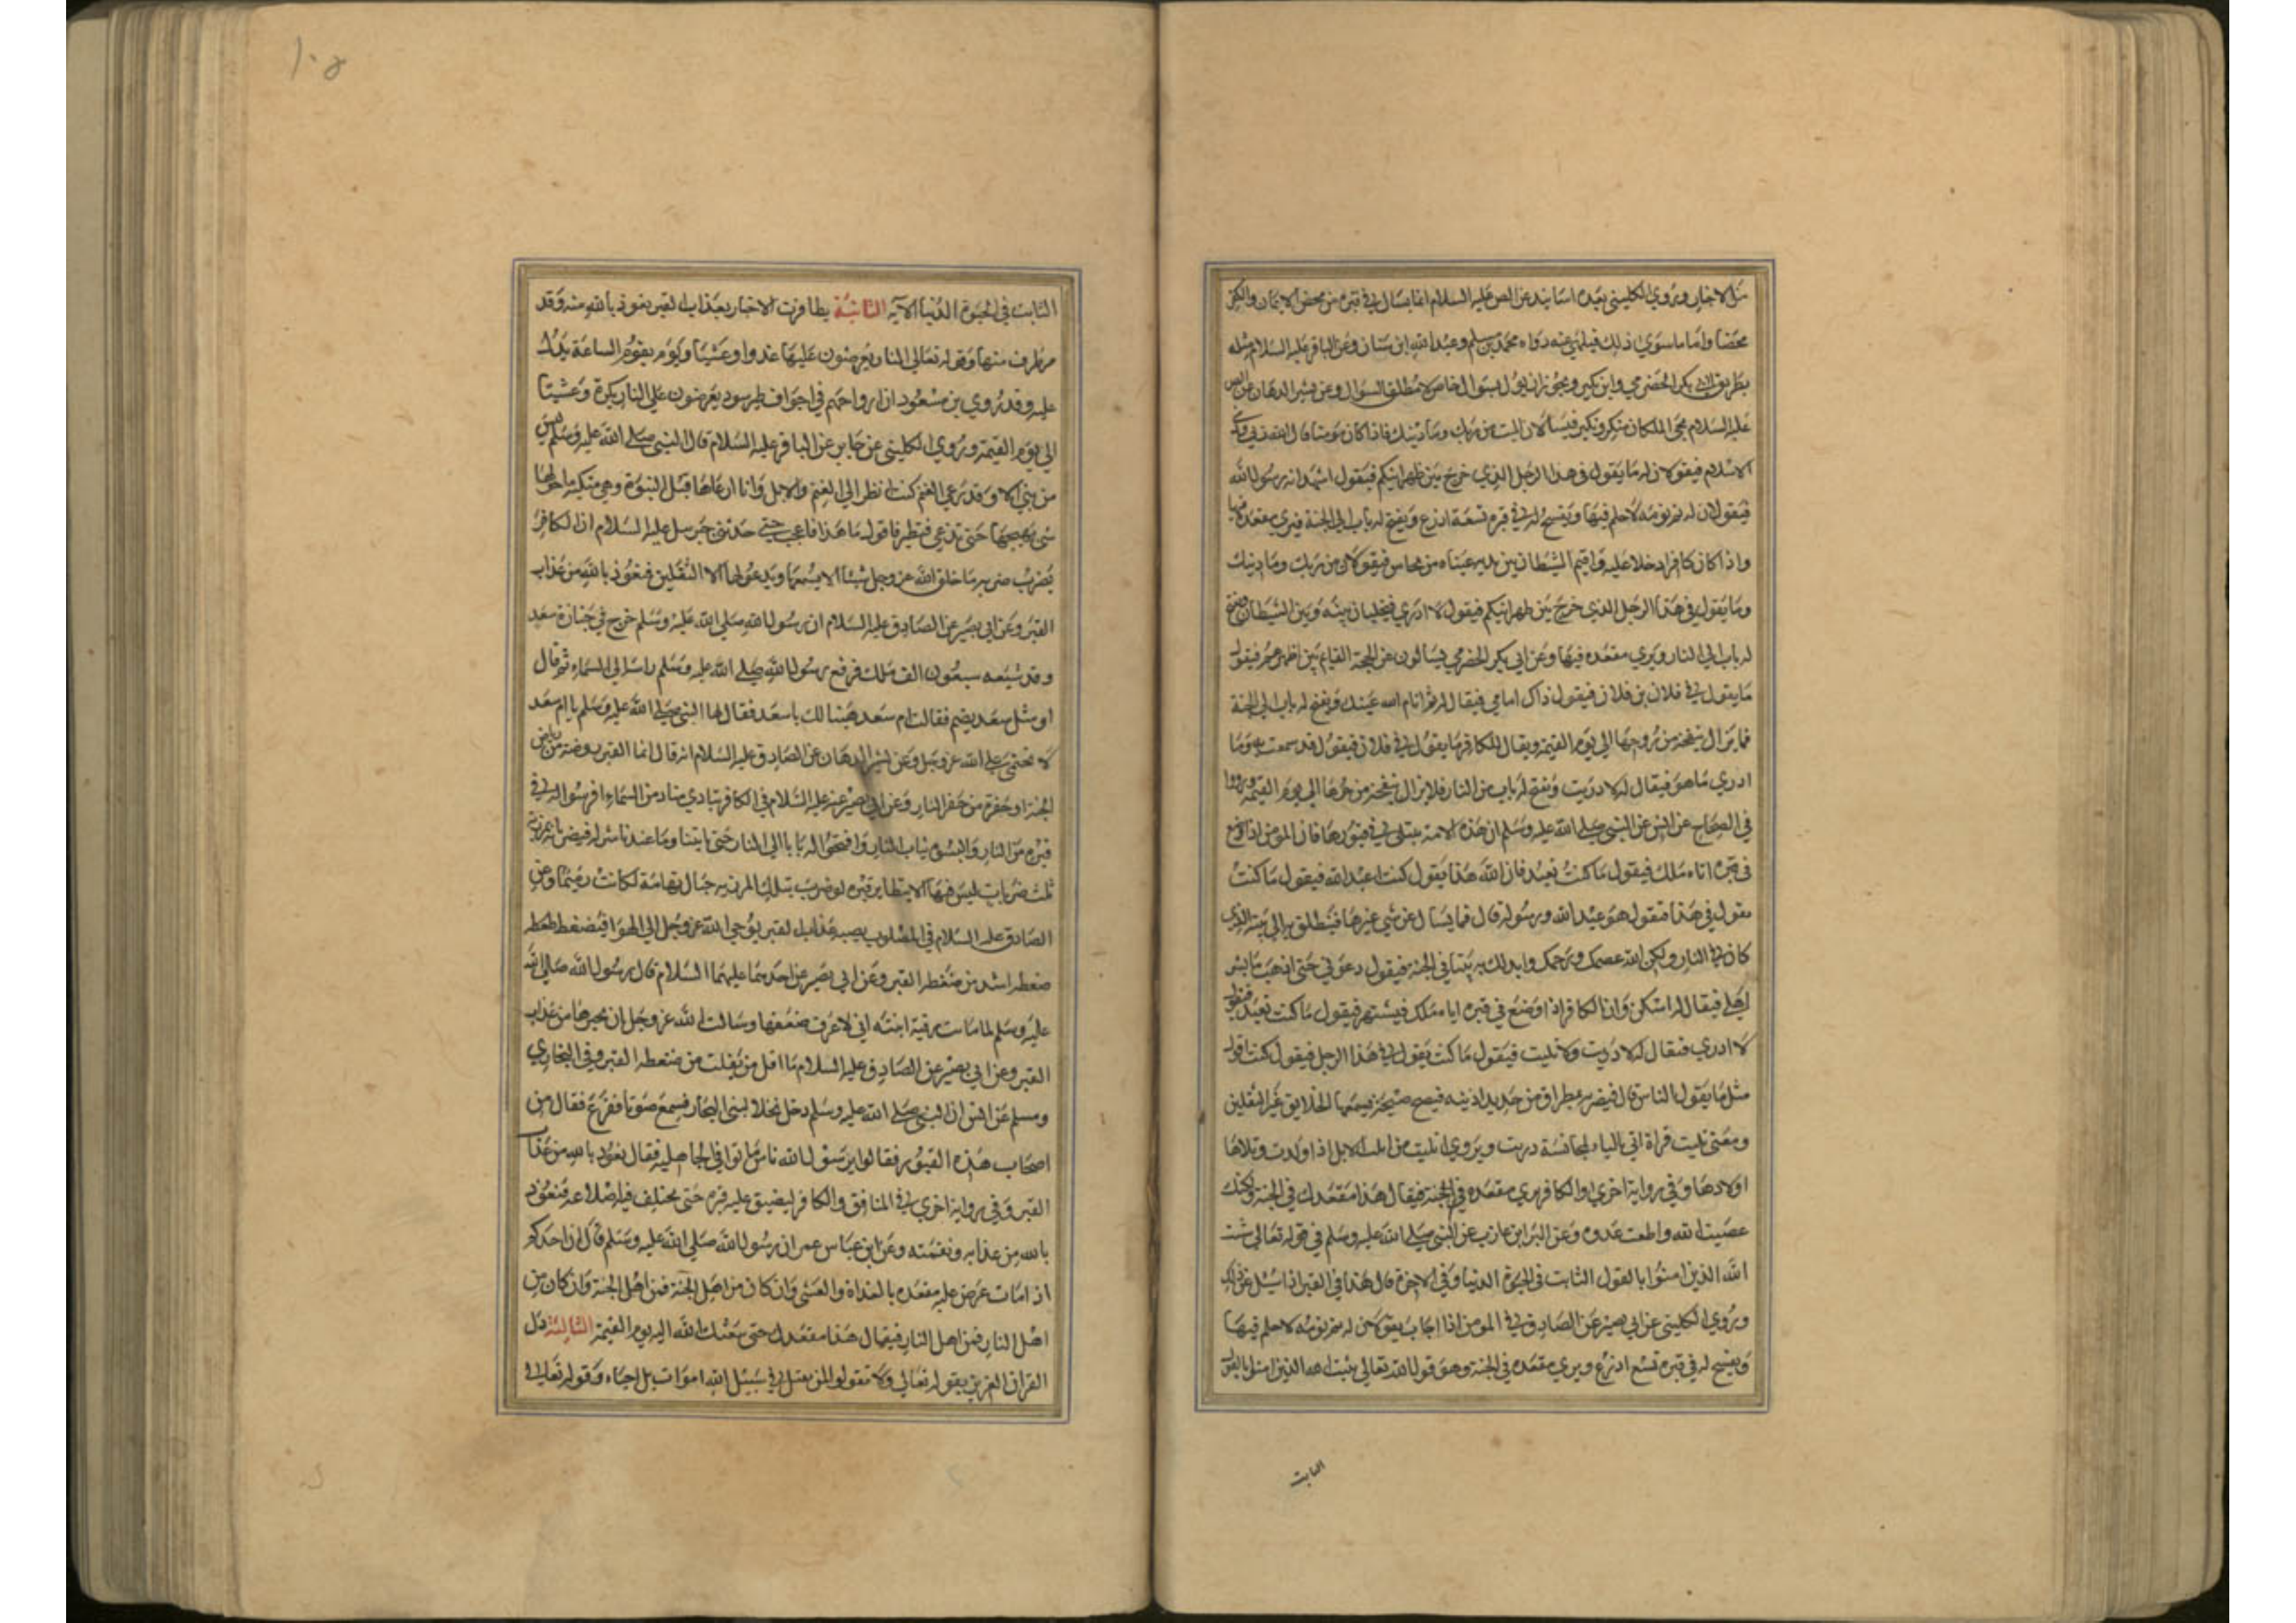 من الاخبار وروي الكليني بعده اسانيد عن الص عليه السلام انما يسال في قبره من محض الايمان والكفر
محضا واما ما سوي ذلك فيلهي عنه رواه محمد بن مسلم وعبد الله ابن سنان وعن الباقر عليه السلام مثله
بطريق ابي بكر الحضرمي وابن بكير ويجوز ان يول بسوال خاص لا مطلق السوال وعن بشير الدهان عن الص
عليه السلام يجي الملكان منكر ونكير فيسالان الميت من ربك وما دينك فاذا كان مومنا قال الله ربي وديني
الاسلام فيقولان له ما يقول في هذا الرجل الذي خرج بين ظهرانيكم فيقول اشهد انه رسول الله
فيقولان له نم نومة لا حلم فيها ويفسح له في قبره تسعة اذرع ويفتح له باب الي الجنة فيري مقعده فيها
واذا كان كافرا دخلا عليه واقيم الشيطان بين يديه عيناه من نحاس فيقولان من ربك وما دينك
وما يقول في هذا الرجل الذي خرج بين ظهرانيكم فيقول لا ادري فيخليان بينه وبين الشيطان ويفتح
له باب الي النار ويري مقعده فيها وعن ابي بكر الحضرمي يسالون عن الحجة القايم بين اظهرهم فيقول
ما يقول في فلان بن فلان فيقول ذاك امامي فيقال له نم انام الله عينك ويفتح له باب الي الجنة
فما يزال ينفحه من روحها الي يوم القيمة ويقال للكافر ما يقول في فلان فيقول قد سمعت به وما
ادري ما هو فيقال له لا دريت ويفتح له باب من النار فلا يزال ينفحه من حرها الي يوم القيمة ورووا
في الصحاح عن انس عن النبي صلي الله عليه وسلم ان هذه الامة يبتلي في قبورها فان المومن اذا وضع
في قبره اتاه ملك فيقول ما كنت تعبد فان الله هداه يقول كنت اعبد الله فيقول ما كنت
يقول في هذا فيقول هو عبد الله ورسوله قال فما يسال عن شي غيرها فينطلق به الي بيته الذي
كان في النار ولكن الله عصمك ورحمك وابدلك به بيتا في الجنة فيقول دعوني حتي اذهب فابشر
اهلي فيقال له اسكن وان الكافر اذا وضع في قبره اتاه ملك فينتهره فيقول ما كنت تعبد فيقول
لا ادري فيقال له لا دريت ولا تليت فيقول ما كنت يقول في هذا الرجل فيقول كنت اقول
مثل ما يقول الناس قال فيضربه بمطراق من حديد اذنيه فيصيح صيحة يسمعها الخلايق غير الثقلين
ومعني تليت قراة اتي بالياء لمجانسة دريت ويروي اتليت من اتلت الابل اذا ولدت وتلاها
اولادها وفي رواية اخري والكافر يري مقعده في الجنة فيقال هذا مقعدك في الجنة ولكنك
عصيت الله واطعت عدوه وعن البرا بن عازب عن النبي صلي الله عليه وسلم في قوله تعالي يثبت
الله الذين امنوا بالقول الثابت في الحيوة الدنيا وفي الاخرة قال هذا في القبر اذا سئل عن ذلك
وروي الكليني عن ابي بصير عن الصادق في المومن اذا اجاب يقولان له نم نومة لا حلم فيها
ويفسح له في قبره تسع اذرع ويري مقعده في الجنة وهو قول الله تعالي يثبت الله الذين امنوا بالقول
الثابت
١٠٥
الثابت في الحيوة الدنيا الآيه الثانية يظافرت الاخبار بعذاب القبر نعوذ بالله منه وقد
مر طرف منها وقوله تعالي النار يعرضون عليها غدوا وعشيا ويوم يقوم الساعة يدل
عليه وقد روي بن مسعود ان ارواحهم في اجواف طير سود يعرضون علي النار بكرة وعشيا
الي يوم القيمة وروي الكليني عن جابر عن الباقر عليه السلام قال النبي صلي الله عليه وسلم ليس
من نبي الا وقد رعي الغنم كنت انظر الي الغنم والابل وانا ارعاها قبل النبوة وهي متمكنة ما حولها
شي يهيجها حتي تذعر فتطير فاقول ما هذا فاعجب حتي حدثني جبرئيل عليه السلام ان الكافر
يضرب ضربة ما خلق الله عز وجل شيئا الا يسمعها ويذعر لها الا الثقلين فنعوذ بالله من عذاب
القبر وعن ابي بصير عن الصادق عليه السلام ان رسول الله صلي الله عليه وسلم خرج في جنازة سعد
وقد شيعه سبعون الف ملك فرفع رسول الله صلي الله عليه وسلم راسه الي السماء ثم قال
او مثل سعد يضم فقالت ام سعد هنيئا لك يا سعد فقال لها النبي صلي الله عليه وسلم يا ام سعد
لا تحتمي علي الله عز وجل وعن بشير الدهان عن الصادق عليه السلام انه قال انما القبر روضة من رياض
الجنة او حفرة من حفر النار وعن ابي بصير عنه عليه السلام في الكافر ينادي مناد من السماء افرشوا له في
قبره من النار والبسوه ثياب النار وافتحوا له بابا الي النار حتي ياتينا وما عندنا شر له فيضربانه بمرزبة
ثلث ضربات ليس فيها الا يتطاير قبره لو ضرب بتلك المرزبه جبال تهامة لكانت رميما وعن
الصادق عليه السلام في المصلوب يصيبه عذاب القبر يوحي الله عز وجل الي الهوا فيضغطه ضغطه
ضغطه اشد من ضغطه القبر وعن ابي بصير عن احدهما عليهما السلام قال رسول الله صلي الله
عليه وسلم لما ماتت رقية ابنته اني لاعرف ضعفها وسالت الله عز وجل ان يجيرها من عذاب
القبر وعن ابي بصير عن الصادق عليه السلام ما اقل من يفلت من ضغطه القبر وفي البخاري
ومسلم عن انس ان النبي صلي الله عليه وسلم دخل نخلا لبني النجار فسمع صوتا ففزع فقال من
اصحاب هذه القبور فقالوا يا رسول الله ناس ماتوا في الجاهلية فقال نعوذ بالله من عذاب
القبر وفي رواية اخري في المنافق والكافر ليضيق عليه قبره حتي يختلف فيه اضلاعه فنعوذ
بالله من عذابه ونقمته وعن ابن عباس عمر ان رسول الله صلي الله عليه وسلم قال ان احدكم
اذا مات عرض عليه مقعده بالغداة والعشي وان كان من اهل الجنة فمن اهل الجنة وان كان من
اهل النار فمن اهل النار فيقال هذا مقعدك حتي يبعثك الله اليه يوم القيمة الثالثة دل
القران العزيز بقوله تعالي ولا تقولوا لمن يقتل في سبيل الله اموات بل احياء وقوله تعالي في